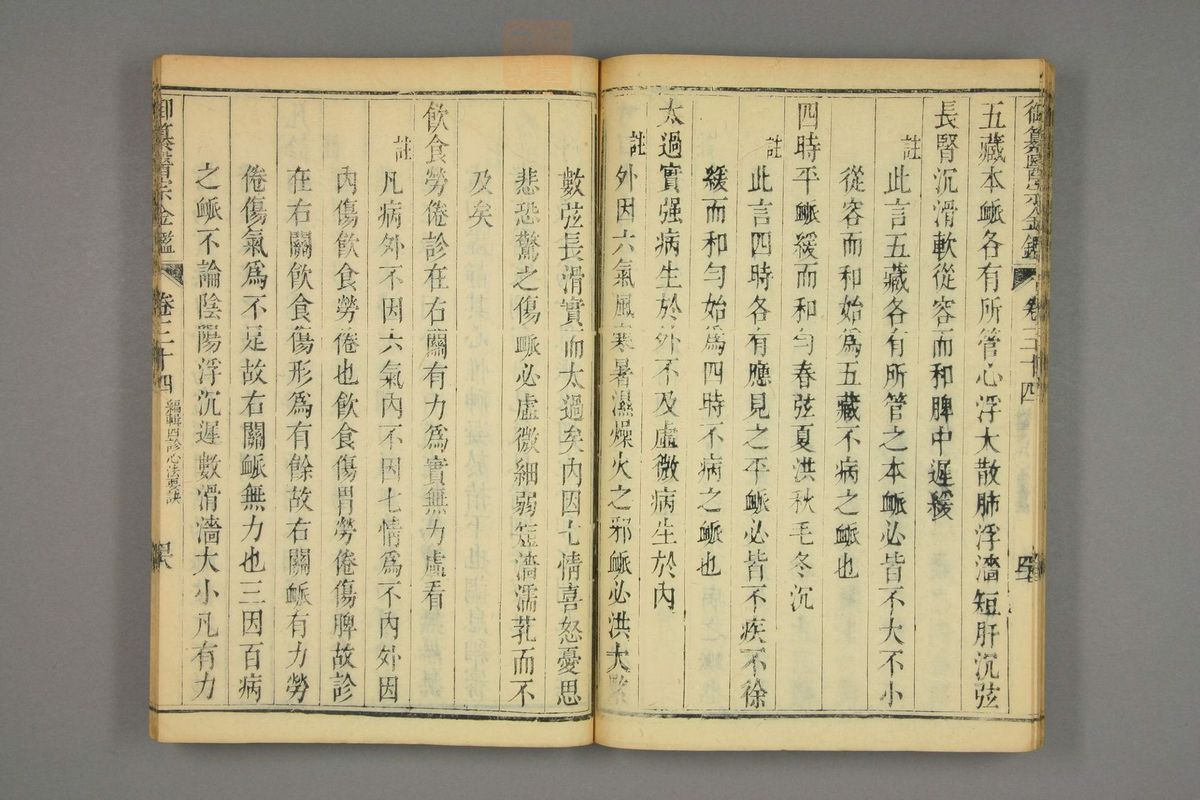 御纂醫宗金鑑 卷三十四
五藏本脈各有所管心浮大散肺浮濇短肝沉弦
長腎沉滑軟從容而和脾中遲緩
註
此言五藏各有所管之本脈必皆不大不小
從容而和始爲五藏不病之脈也
四時平脈緩而和勻春弦夏洪秋毛冬沉
註
此言四時各有應見之平脈必皆不疾不徐
緩而和勻始爲四時不病之脈也
太過實强病生於外不及虛微病生於內
註
外因六氣風寒暑濕燥火之邪脈必洪大緊
數弦長滑實而太過矣內因七情喜怒憂思
悲恐驚之傷脈必虛微細弱短濇濡芤而不
及矣
飲食勞倦診在右關有力爲實無力虛看
註
凡病外不因六氣內不因七情爲不內外因
內傷飲食勞倦也飲食傷胃勞倦傷脾故診
在右關飲食傷形爲有餘故右關脈有力勞
倦傷氣爲不足故右關脈無力也三因百病
之脈不論陰陽浮沉遲數滑濇大小凡有力
御纂醫宗金鑑 卷三十四 編輯四診心法要訣